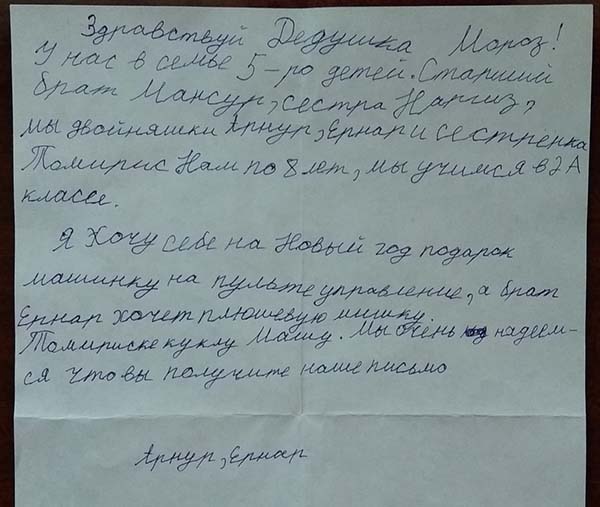 Здравствуй Дедушка Мороз!
У нас в семье 5-ро детей. Старший
брат Мансур, сестра Наргиз,
мы двойняшки Арнур, Ернар и сестренка
Томирис Нам по 8 лет, мы учимся в 2 А
классе.
Я хочу себе на Новый год подарок
машинку на пульте управление, а брат
Ернар хочет плюшевую мишку.
Томириске куклу Машу. Мы очень надеем-
ся что вы получите наше письмо
Арнур, Ернар